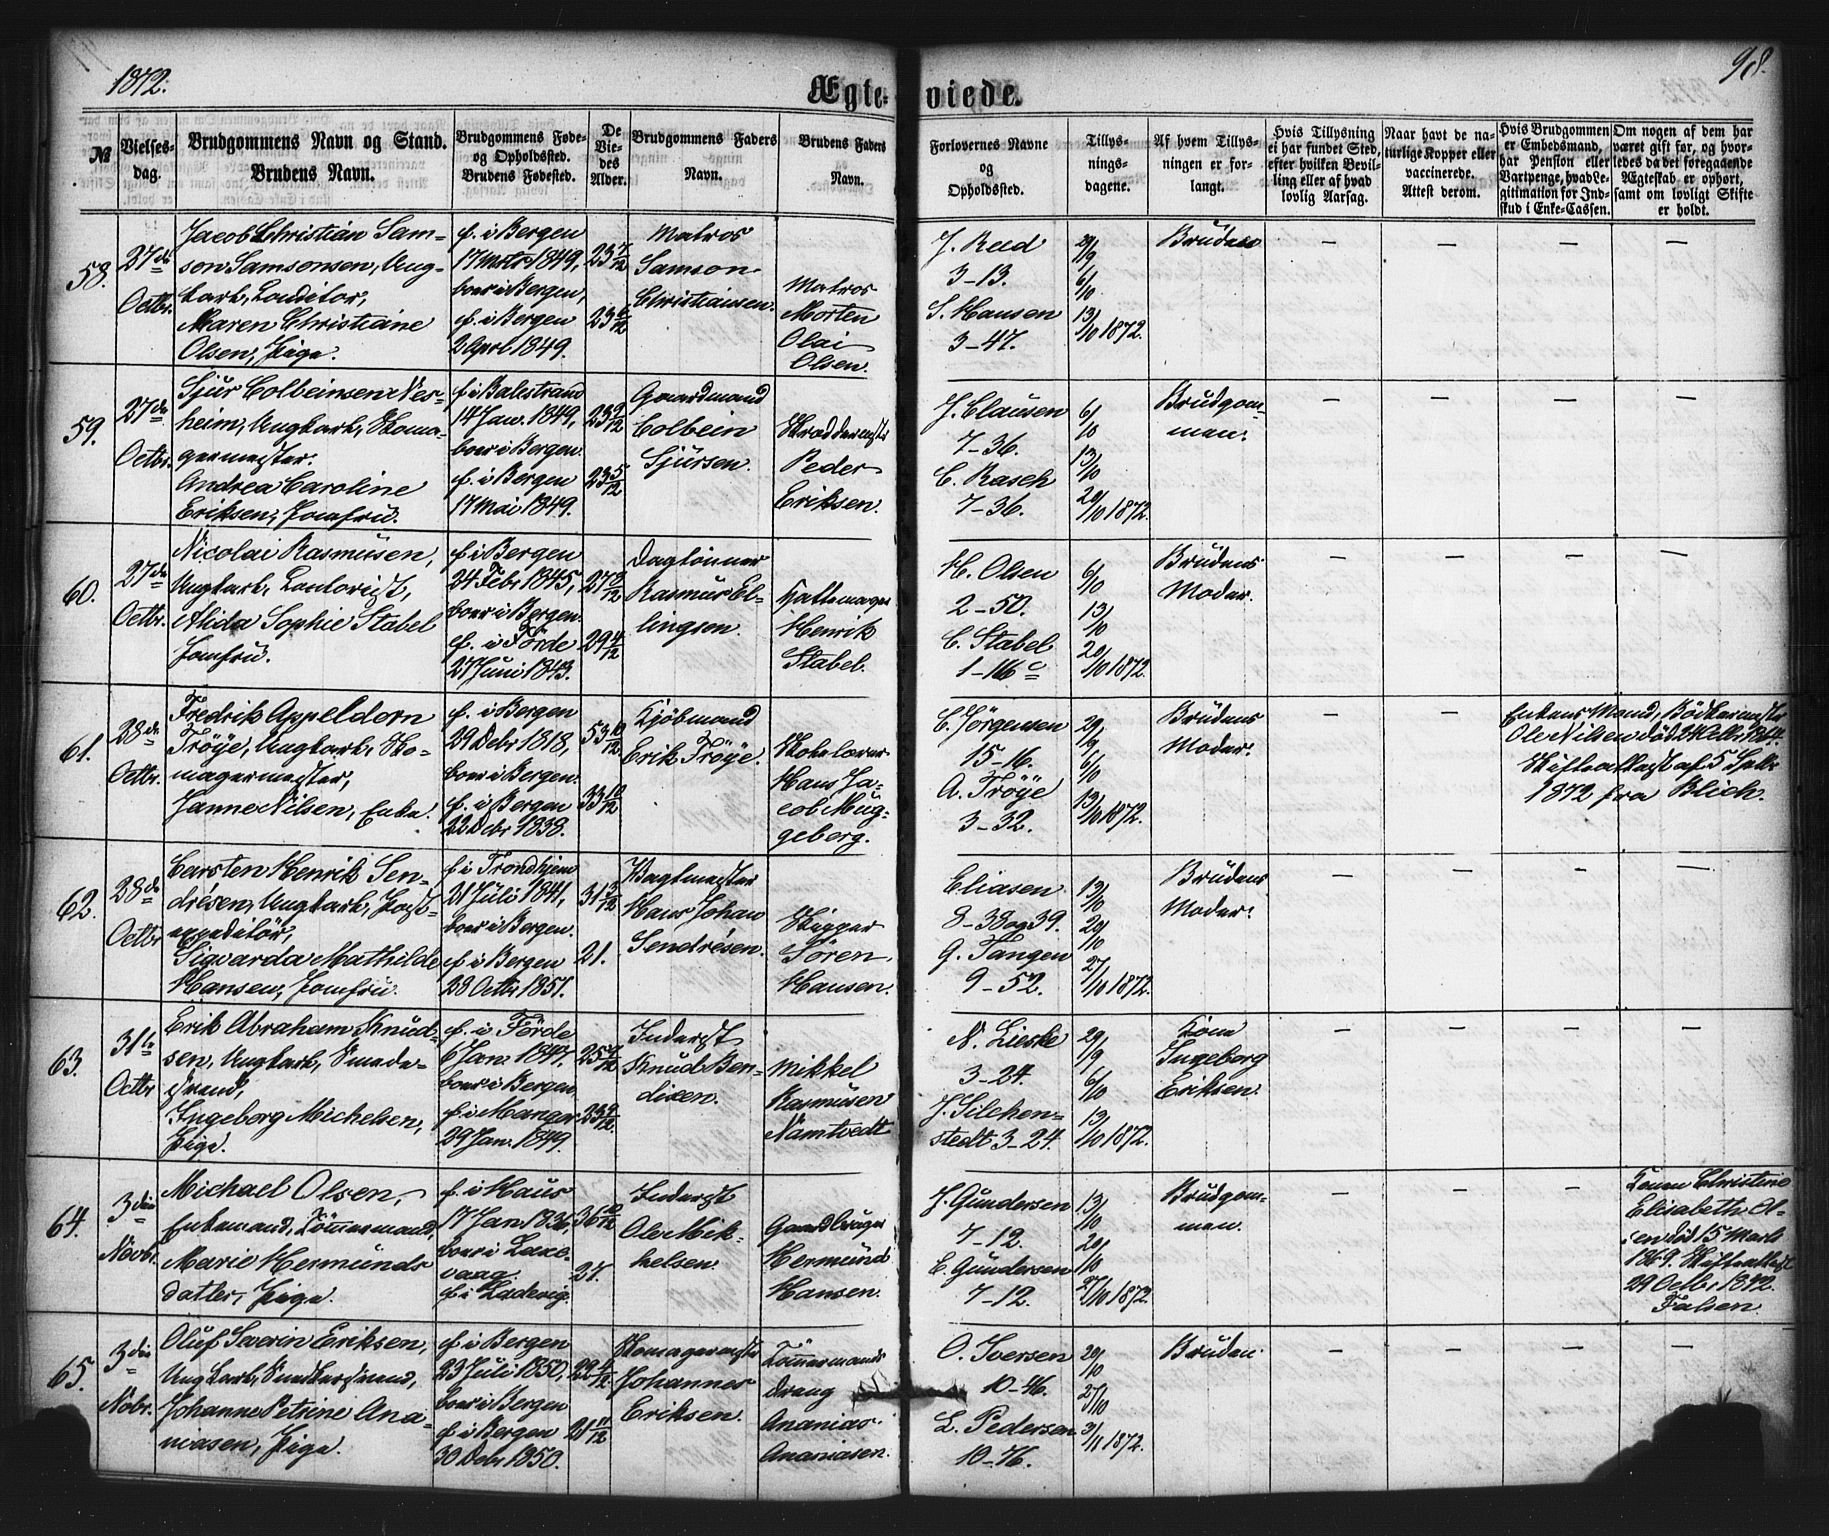 1872.
98.
Ægte-
viede.
№
Vielses-
dag.
Brudgommens Navn og Stand.
Brudens Navn.
Brudgommens Føde-
og Opholdssted.
Brudens Fødested.
De
Vie-
des
Alder.
Brudgommens Faders
Navn.
Brudens Faders
Navn.
Forlovernes Navne
og
Opholdssted.
Tillys-
nings-
dagene.
Af hvem Tillys-
ningen er for-
langt.
Hvis Tillysning
ei har fundet Sted,
efter hvilken Bevil-
ling eller af hvad
lovlig Aarsag.
Naar havt de na-
turlige Kopper eller
vaccinerede.
Attest derom.
Hvis Brudgommen
er Embedsmand,
har Pension eller
Vartpenge, hvad Le-
gitimation for Ind-
skud i Enke-Cassen.
Om nogen af dem har
været gift før, og hvor-
ledes da det foregaaende
Ægteskab er ophørt,
samt om lovligt Skifte
er holdt.
58.
27de
Octbr.
Jacob Christian Sam-
son Samsonsen, Ung-
karl, Conditor,
Maren Christiane
Olsen, Pige.
f. i Bergen
17 Marts 1849,
boer i Bergen,
f. i Bergen
2 April 1849.
23 7/12
23 6/12
Matros
Samson
Christiansen.
Matros
Morten
Olai
Olsen.
J. Reed
3-13.
S. Hansen
3-47.
29/9
6/10
13/10 1872.
Bruden
— — — —
59.
27de
Octbr.
Sjur Colbeinsen Nes-
heim, Ungkarl, Skoma-
germester.
Andrea Caroline
Eriksen, Jomfru.
f. i Balestrand
14 Jan. 1849,
boer i Bergen.
f. i Bergen
17 Mai 1849.
23 9/12
23 5/12
Gaardmand
Colbein
Sjursen.
Skræddermestr
Peder
Eriksen.
J. Clausen
7-36.
C. Rasch
7-36.
6/10
13/10
20/10 1872.
Brudgom-
men.
— — — —
60.
27de
Octbr.
Nicolai Rasmusen,
Ungkarl, Contorist,
Alida Sophie Stabel
Jomfru.
f. i Bergen
24 Febr 1845,
boer i Bergen.
f. i Förde
27 Juni 1843.
27 8/12
29 4/12
Daglönner
Rasmus El-
lingsen.
Hattemager
Henrik
Stabel.
H. Olsen
2-50.
C. Stabel
1-116 c
6/10
13/10
20/10 1872.
Brudens
Moder.
— — — —
61.
28de
Octbr.
Fredrik Appeldorn
Tröye, Ungkarl, Sko-
magermester,
Janne Nilsen, Enke.
f. i Bergen
29 Debr 1818,
boer i Bergen.
f. i Bergen
22 Debr 1838.
53 10/12
33 10/12
Kjöbmand
Erik Tröye.
Skolelærer
Hans Ja-
cob Mug-
geborg.
C. Jörgensen
15-16.
A. Tröye
3-32.
29/9
6/10
13/10 1872.
Brudens
Moder.
— —
Enkens Mand, Bödkermester
Ole Nilsen död
Skifteattest af 5
1872 fra Blich.
62.
28de
Octbr
Carsten Henrik Sen-
drésen, Ungkarl, Post-
expeditör,
Sigvarda Mathilde
Hansen, Jomfru.
f. i Trondhjem
21 Juli 1841,
boer i Bergen.
f. i Bergen
28 Octbr 1851.
31 3/12
21.
Vagtmester
Hans Johan
Sendrésen.
Skipper
Sören
Hansen.
Eliasen
8-38 og 39.
G. Tangen
9-52.
13/10
20/10
27/10 1872.
Brudens
Moder.
— — — —
63.
31te
Octbr
Erik Abraham Knud-
sen, Ungkarl, Smede-
svend,
Ingeborg Michelsen,
Pige.
f. i Förde
6 Jan. 1847,
boer i Bergen
f. i Manger
29 Jan. 1849.
25 9/12
23 9/12
Inderst
Knud Ben-
dixen.
Mikkel
Rasmusen
Namtvedt
N. Lieske
3-24.
J. Silchen-
stedt 3-24.
29/9
6/10
13/10 1872.
Kone
Ingeborg
Eriksen.
— — — —
64.
3die
Novbr.
Michael Olsen,
Enkemand, Tömmermand,
Marie Hermunds
datter, Pige.
f. i Haus
17 Jan 1836,
boer i Laxe-
vaag
f. i Ladevig.
36 10/12
27.
Inderst
Ole Mik-
kelsen.
Gaardbruger
Hermund
Hansen.
J. Gundersen
7-12.
E. Gundersen
7-12.
13/10
20/10
27/10 1872.
Brudgom-
men.
— — —
Konen Christine
Elisabeth Ol-
sen död 15 Marts
1869. Skifteattest
29 Octbr 1872.
Falsen
65.
3die
Nobr.
Oluf Severin Eriksen,
Ungkarl, Snedkersvend,
Johanne Petrine Ana-
niasen, Pige.
f. i Bergen
23 Juli 1850,
boer i Bergen
f. i Bergen
30 Debr 1850.
22 4/12
21 11/12
Skomagermestr
Johannes
Eriksen.
Tömmermands
dreng
Ananias
Ananiasen.
O. Iversen
10-46.
L. Pedersen
10-76.
20/10
27/10
3/11 1872.
Bruden.
— — — —